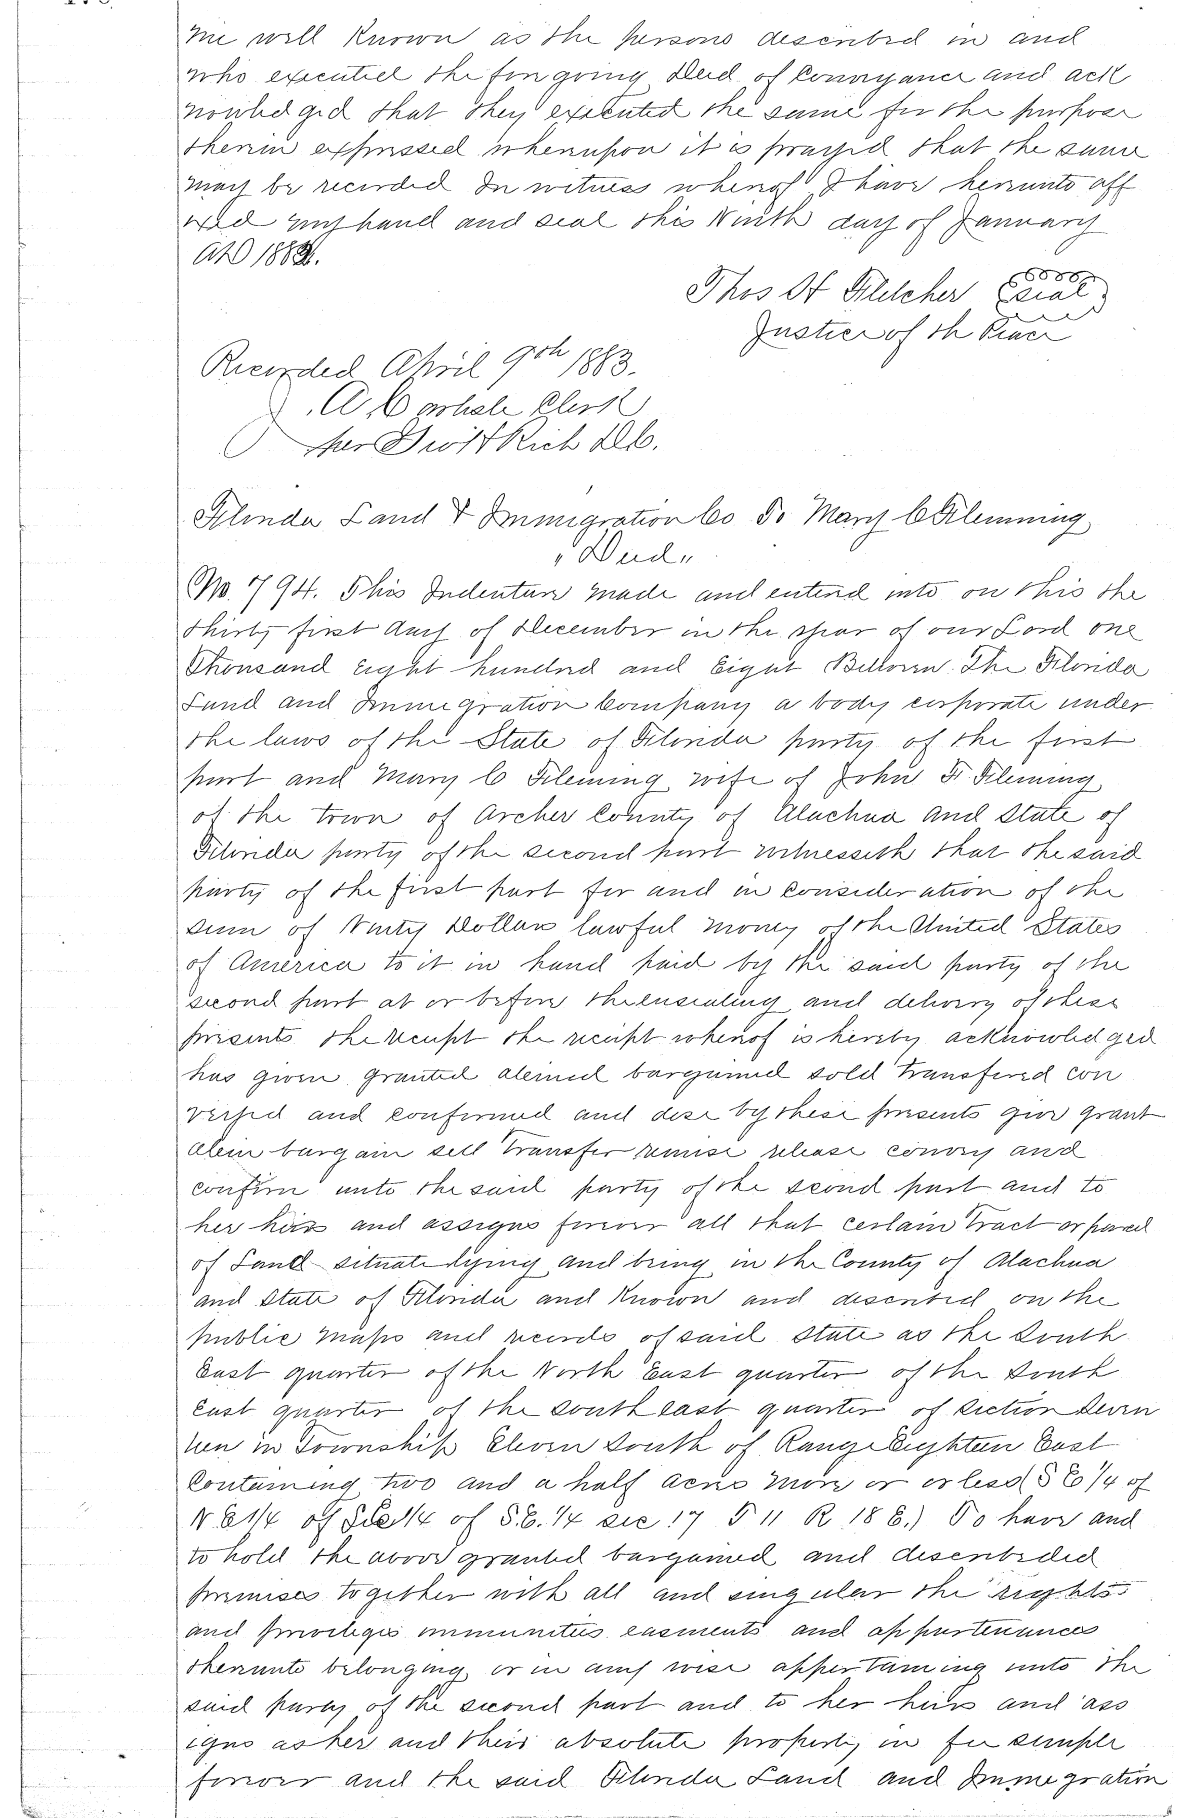 me well Known as the persons described in and
who executed the foregoing Deed of Conveyance and ack
nowledged that they executed the same for the purpose
therein expressed whereupon it is prayed that the same
may be recorded In witness whereof I have hereunto aff
ixed my hand and seal this Ninth day of January
AD 188
Thos H Fletcher Seal
Justice of th Peace
Recorded April 9th 1883.
A C Clerk
per Dwit Rich D.C.
Florida Land & Immigration Co To Mary C Flemming
"Deed"
No. 794. This Indenture made and enterd into on this the
thirty first day of December in the year of our Lord one
Thousand eight hundred and Eight Between The Florida
Land and Immigration Company a body corporate under
the laws of the State of Florida party of the first
part and Mary C Fleming wife of John F. Fleming
of the town of Archer County of Alachua and State of
Florida party of the second part witnesseth that the said
party of the first part for and in consideration of the
sum of Ninty Dollars lawful money of the United States
of America to it in hand paid by the said party of the
second part at or before the ensealing and delivery of these
presents the receipt the receipt whereof is hereby acknowledged
has given granted aliened bargained sold transfered con
veyed and confirmed and dose by these presents give grant
alein bargain sell transfer remise release convey and
confirm unto the said party of the second part and to
her heirs and assigns forever all that certain tract or parcel
of Land situate lying and being in the County of Alachua
and State of Florida and Known and described on the
public maps and records of said State as the South
East quarter of the North East quarter of the South
East quarter of the South East quarter of Section Seven
teen in Township Eleven South of Range Eighteen East
Containing two and a half acres more or or less (S E 1/4 of
N E 1/4 of S E 1/4 of S.E. 1/4 sec 17 T 11 R 18 E.) To have and
to hold the above granted bargained and describded
premises together with all and singular the rights
and privileges immunities easments and appurtenances
thereunto belonging or in any wise appertaining unto the
said party of the second part and to her heirs and ass
igns as her and their absolute property in fee simple
forever and the said Florida Land and Immegration